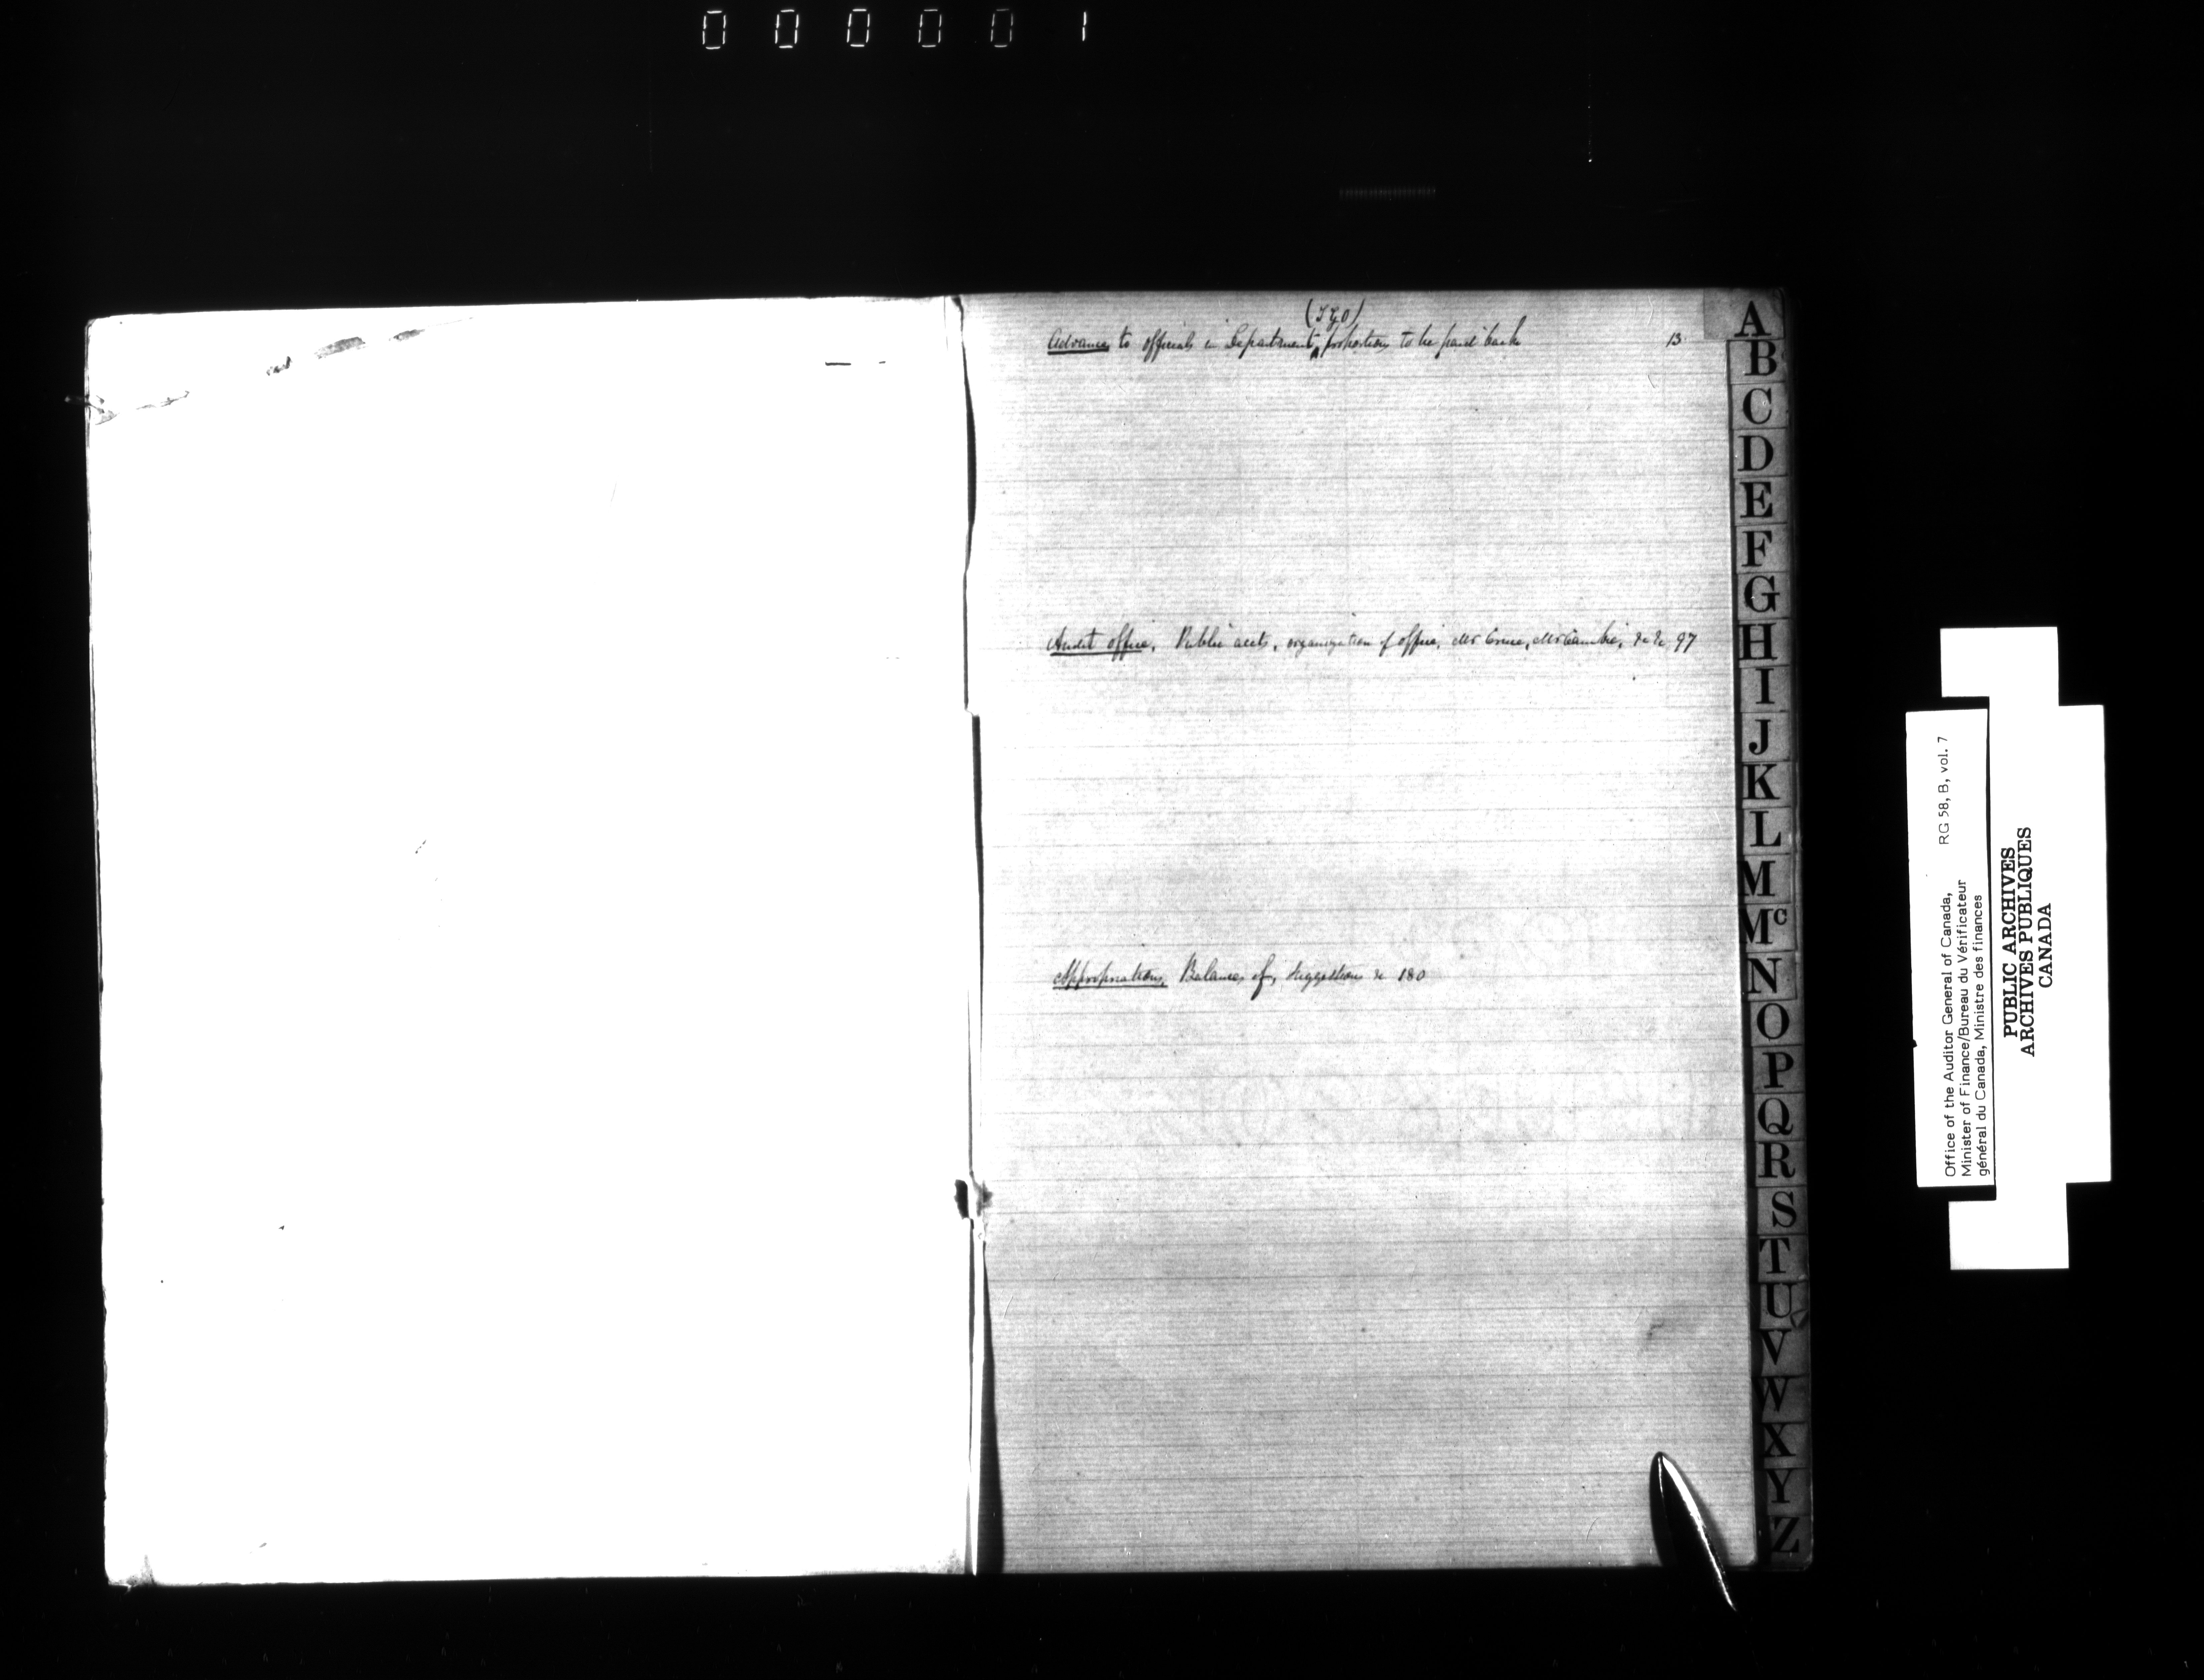 000001
(I G O)
Advances to officials in Department, proportions to be paid back 13
Audit office, Public accts, organization of office, Mr Cruse, Mr Cambie, &c &c 97
Appropriations, Balances of, suggestions &c 180
A
B
C
D
E
F
G
H
I
J
K
L
M
Mc
N
O
P
Q
R
S
T
U
V
W
X
Y
Z
Office of the Auditor General of Canada, RG 58, B, vol. 7
Minister of Finance/Bureau du Vérificateur
général du Canada, Ministre des finances
PUBLIC ARCHIVES
ARCHIVES PUBLIQUES
CANADA